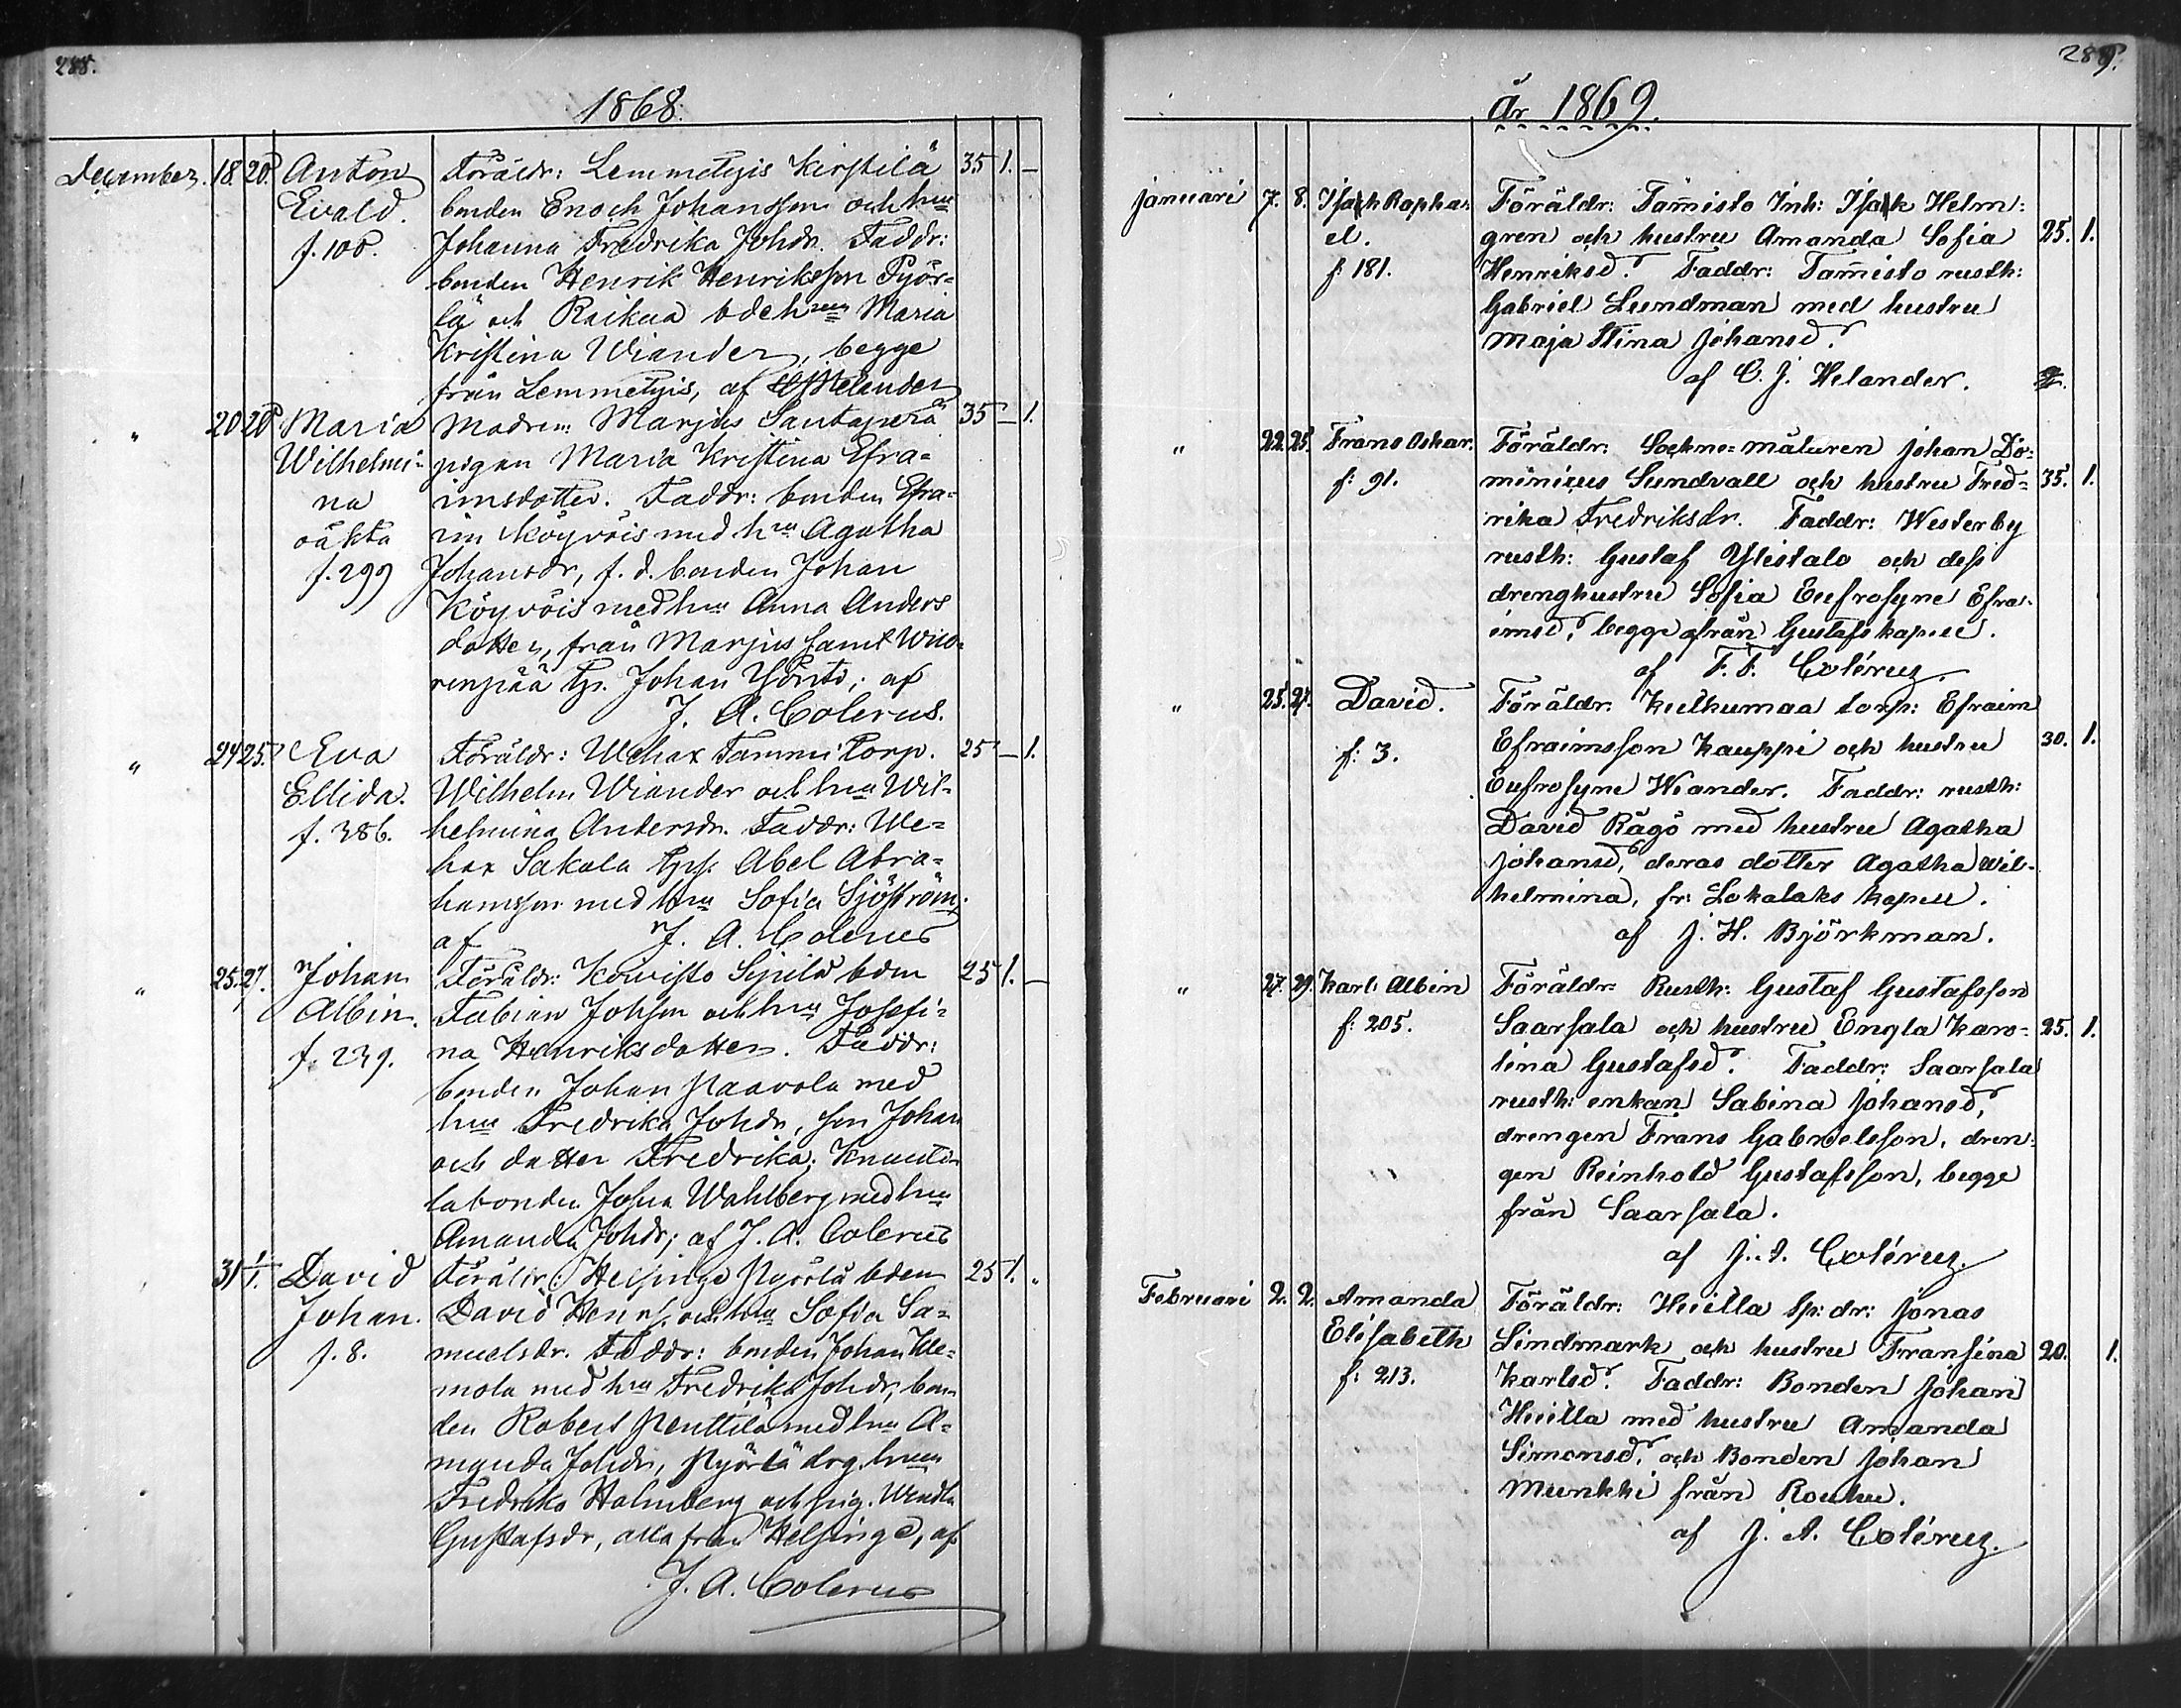 288.
1868.
December. 18. 20. Anton Föräldr: Lemmetyis Kirstilä 35 1. –
Evald. bonden Enoch Johansson och hru
f. 108. Johanna Fredrika Johdr. Faddr:
bonden Henrik Henriksson Pyör-
lä och Raikua bdehru Maria
Kristina Wiander, begge
från Lemmetyis, af Helander
" 20 20 Maria Modren: Marjus Santaperä 35 – 1.
Wilhelmi- pigan Maria Kristina Efra-
na imsdotter. Faddr: bonden Efra-
oäkta im Köyvöis med hru Agatha
f. 299 Johansdr, f. d. bonden Johan
Köyvöis med hru Anna Anders
dotter, från Marjus samt
renpää Johan af
J. A. Colerus.
" 24 25. Eva Föräldr: Wehax Tammi torp. 25 – 1.
Ellida. Wilhelm Wiander och hru Wil-
f. 386. helmina Andersdr. Faddr: We-
hax Sakala Abel Abra-
hamsson med hru Sofia Sjöström;
af J. A. Colerus
" 25. 27. Johan Föräldr: Koivisto Sipilä bden 25 1. –
Albin. Fabian Johsson och hru Josefi-
f. 239. na Henriksdotter. Faddr:
bonden Johan Paavola med
hru Fredrika Johdr, son Johan
och dotter Fredrika; Knuuti-
labonden Johan Wahlberg med hru
Amanda Johdr; af J. A. Colerus
31 1/1. David Föräldr: Helsinge Pyörlä bden 25 1. "
Johan. David Henrs. och hru Sofia Sa-
f. 8. muelsdr. Faddr: bonden Johan
mola med hru Fredrika Johdr, bon
den Robert Penttilä med hru A-
manda Johdr, Pyörlä drg.hru
Fredrika Holmberg och pig. Wendla
Gustafsdr, alla från Helsinge, af
J. A. Colerus
289.
år 1869.
Januari 7. 8. Isak Rapha- Föräldr: Tam̄isto Inh: Isak Helm:
el. gren och hustru Amanda Sofia 25. 1.
f: 181. Henriksd.r Faddr: Tam̄isto rusth:
Gabriel Lundman med hustru
Maja Stina Johansd.r
af C. J. Helander.
" 22. 25. Frans Oskar. Föräldr: Sockne-målaren Johan Do-
f: 91. minicus Sundvall och hustru Fred- 35. 1.
rika Fredriksdr. Faddr: Westerby
rusth: Gustaf Ylistalo och dess
drenghustru Sofia Eufrosyne Efra-
imsd.r begge från Gustafs kapell.
af F. F. Colérus.
" 25. 27. David. Föräldr: Kulhumaa torp: Efraim
f: 3. Efraimsson Kauppi och hustru 30. 1.
Eufrosyne Weander. Faddr: rusth:
David Rågö med hustru Agatha
Johansd.r, deras dotter Agatha Wil-
helmina, fr: Lokalaks kapell.
af J. H. Björkman.
" 27. 29. Karl Albin Föräldr: Rusth: Gustaf Gustafsson
f: 205. Saarsala och hustru Engla Karo- 25. 1.
lina Gustafsd.r Faddr: Saarsala
rusth: enkan Sabina Johansd.r,
drengen Frans Gabrielsson, dren-
gen Reinhold Gustafsson, begge
från Saarsala.
af J. A. Colérus.
Februari 2. 2. Amanda Föräldr: Huilla sp: dr: Jonas
Elisabeth Lindmark och hustru Fransina 20. 1.
f: 213. Karlsd.r Faddr: Bonden Johan
Huilla med hustru Amanda
Simonsd.r och Bonden Johan
Munkki från Rouhu.
af J. A. Colérus.